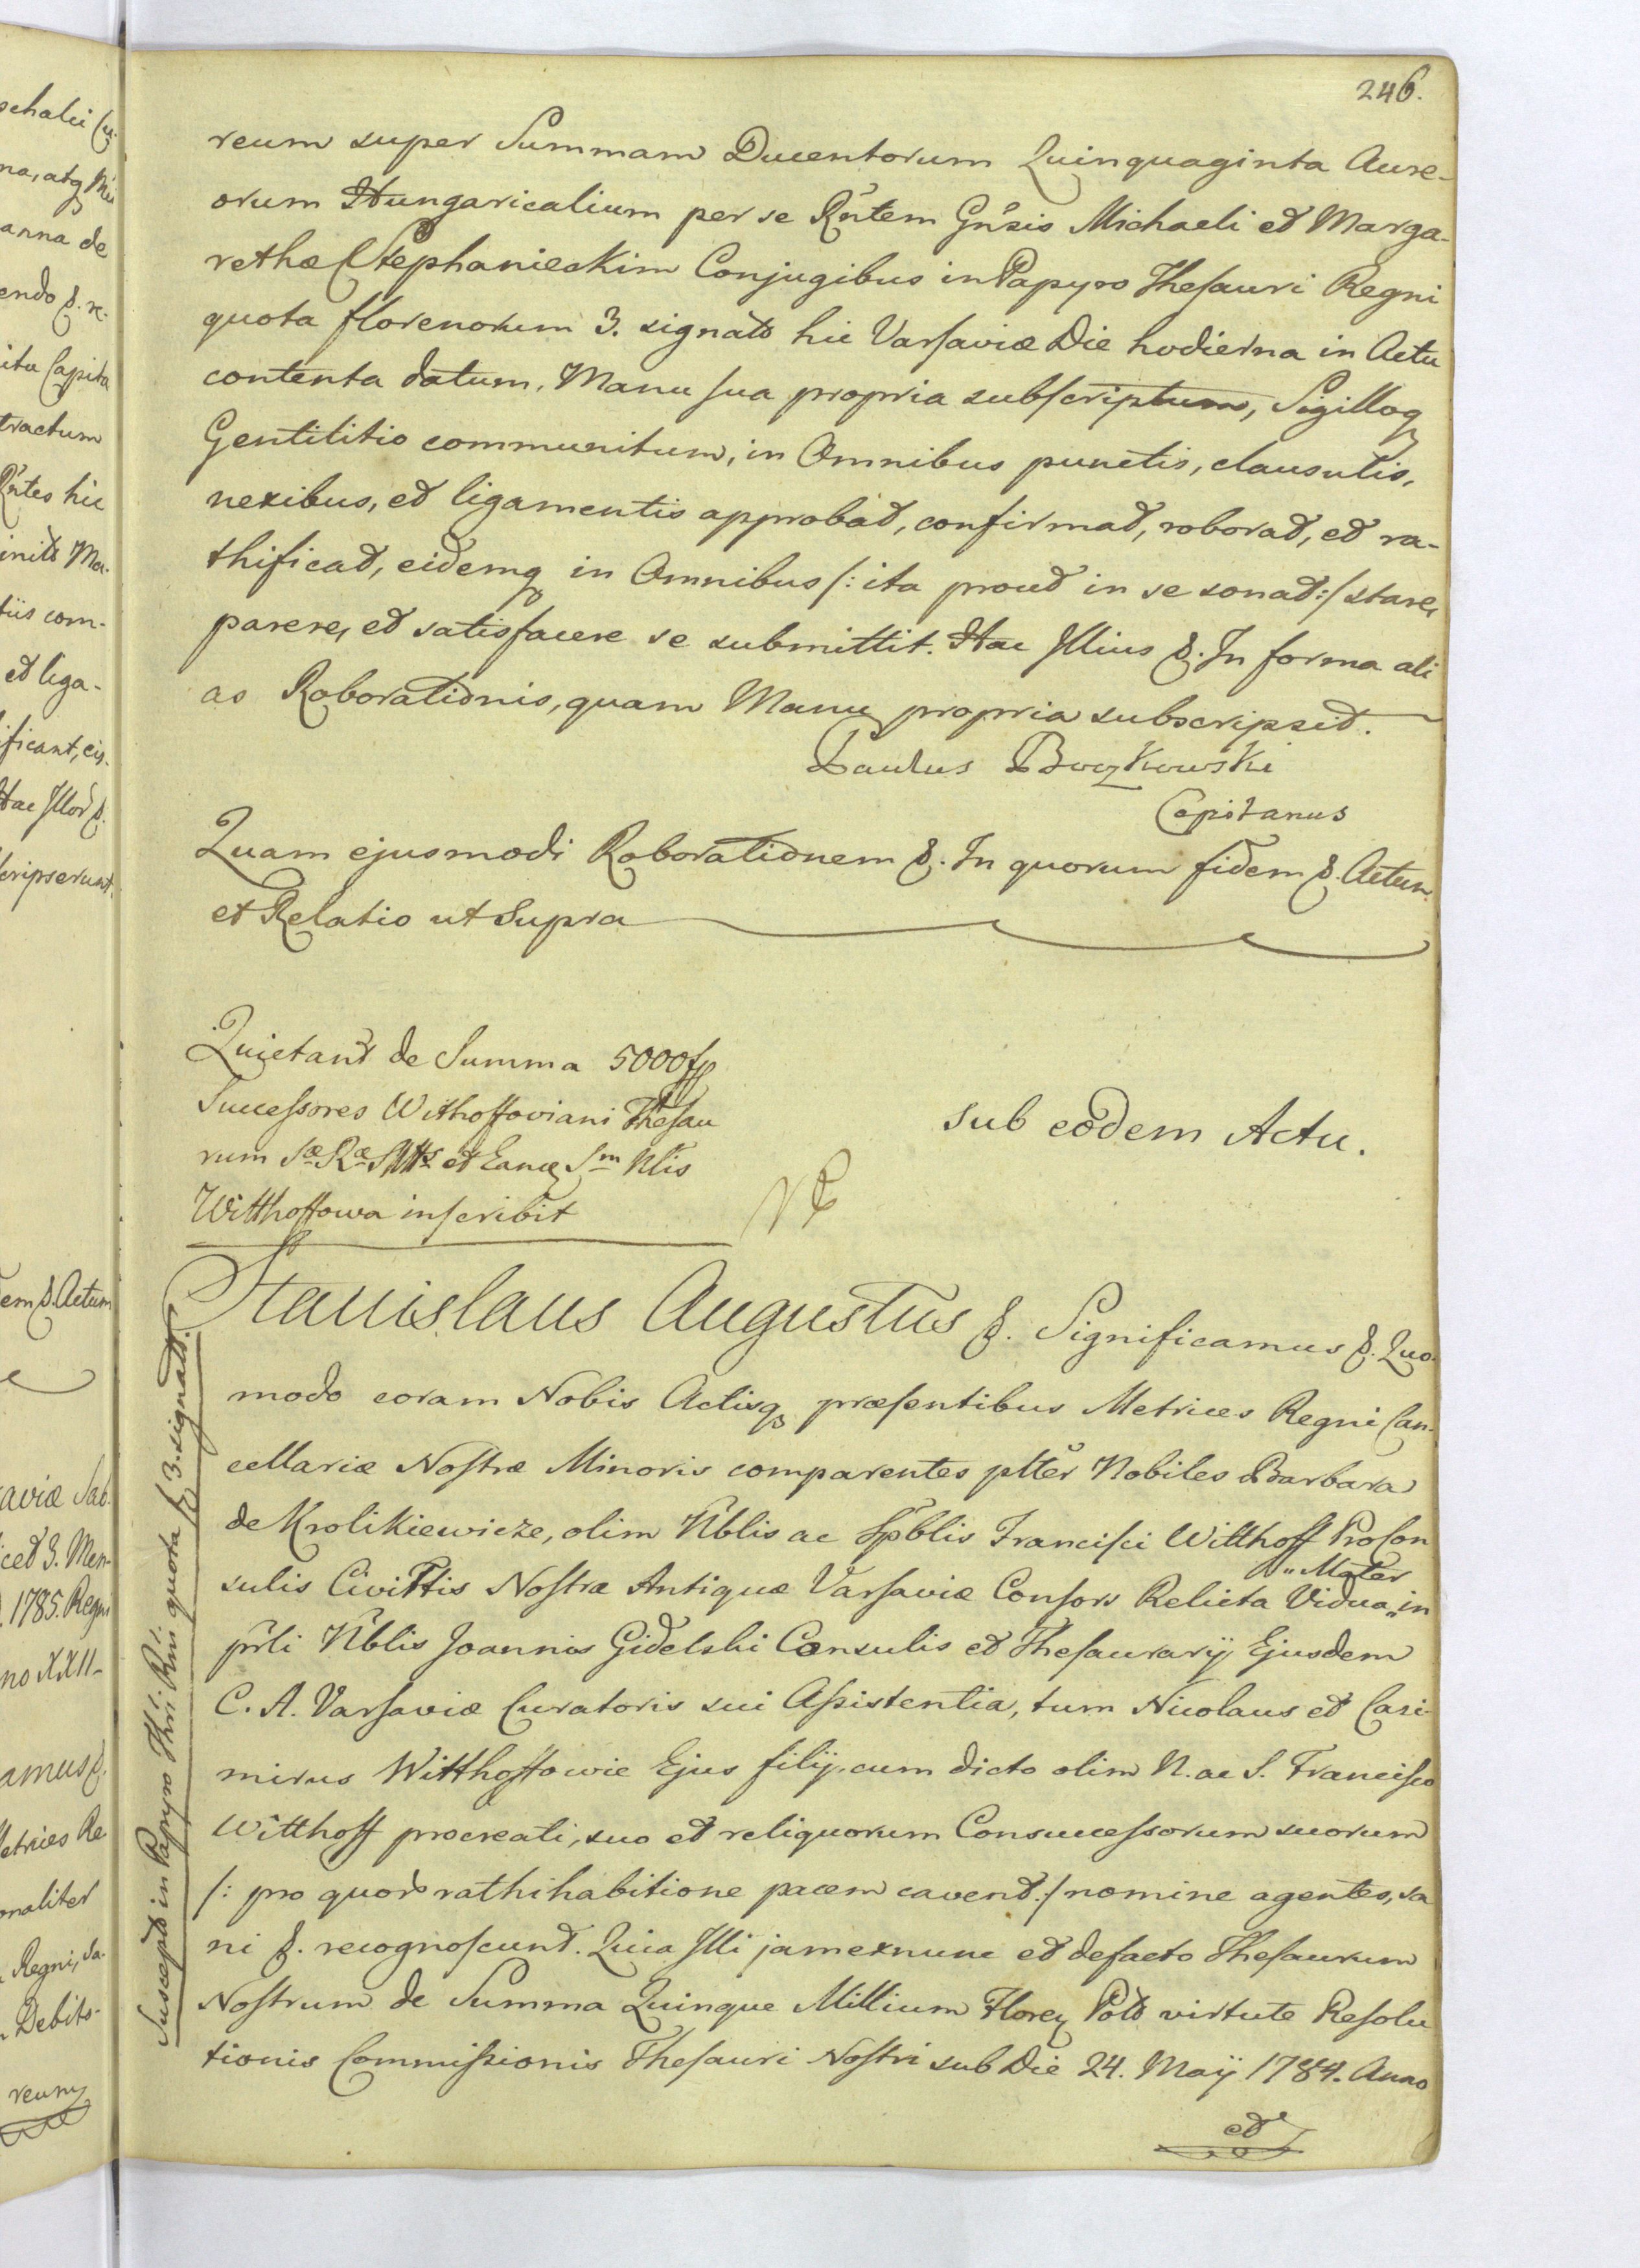 246.
reum super Summam Ducentorum Quinquaginta Aure-
orum Hungaricalium per se Rn̄tem Gn̄sis Michaeli et Marga-
rethæ Stephanieckim Conjugibus in Papyro Thesauri Regni
quota florenorum 3. signato hic Varsaviæ Die hodierna in Actu
contenta datum, Manu sua propria subscriptum, Sigilloq
Gentilitio communitum, in Omnibus punctis, clausulis,
nexibus, et ligamentis approbat, confirmat, roborat, et ra-
thificat, eidemq in Omnibus /: ita prout in se sonat :/ stare,
parere, et satisfacere se submittit. Hac Illius &. In forma ali
as Roborationis, quam Manu propria subscripsit.
Paulus Boczkowski
Capitanus
Quam ejusmodi Roborationem &. In quorum fidem &. Actum
et Relatio ut Supra
Quietant de Summa 5000 fp
Successores Withoffoviani Thesau
rum Sæ Ræ Mttis et Eanq Sm Nlis
Witthoffowa inscribit
sub eodem Actu.
Stanislaus Augustus &. Significamus &. Quo-
modo coram Nobis Actisq præsentibus Metrices Regni Can-
cellariæ Nostræ Minoris comparentes pltēr Nobiles Barbara
de Krolikiewicze, olim N̄blis ac Sp̄blis Francisci Witthoff ProCon
" Mater
sulis Civittis Nostræ Antiquæ Varsaviæ Consors Relicta Vidua " in
pr̄li N̄blis Joannis Gidelski Consulis et Thesaurarij Ejusdem
C. A. Varsaviæ Curatoris sui Assistentia, tum Nicolaus et Casi-
mirus Witthoffowie Ejus filij, cum dicto olim N. ac S. Francisco
Witthoff procreati, suo et reliquorum Consuccessorum suorum
/: pro quor rathihabitione pacem cavent :/ nomine agentes, sa
ni &. recognoscunt. Quia Illi jam exnunc et defacto Thesaurum
Nostrum de Summa Quinque Millium Floren Pol virtute Resolu
tionis Commissionis Thesauri Nostri sub Die 24. Maÿ 1784. Anno
et
Suscept in Papyro Thri Rni quota f 3. signato.